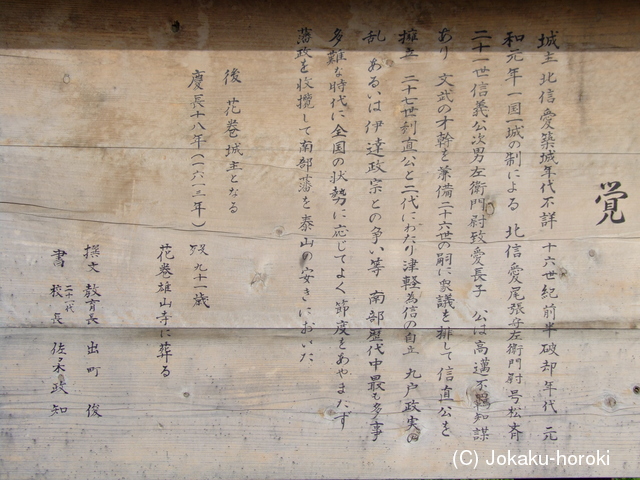 覚
城主 北信愛築城年代不詳 十六世紀前半破却年代 元
和元年一国一城の制による 北信愛尾張守左衛門尉号松斉
二十一世信義公次男左衛門尉致愛長子 公は高邁不羈知謀
あり 文武の才幹を兼備二十六世の嗣に衆議を排して信直公を
擁立 二十七世利直公と二代にわたり津軽為信の自立 九戸政実の
乱 あるいは伊達政宗との争い等 南部歴代中最も多事
多難な時代に全国の状勢に応じてよく節度をあやまたず
藩政を收攬して南部藩を泰山の安きにおいた
後 花巻城主となる
慶長十八年(一六一三年) 歿 九十一歳
花巻雄山寺に葬る
撰文 教育長 出町 俊
書 二十一代 校長 佐々木政知
(C) Jokaku-horoki